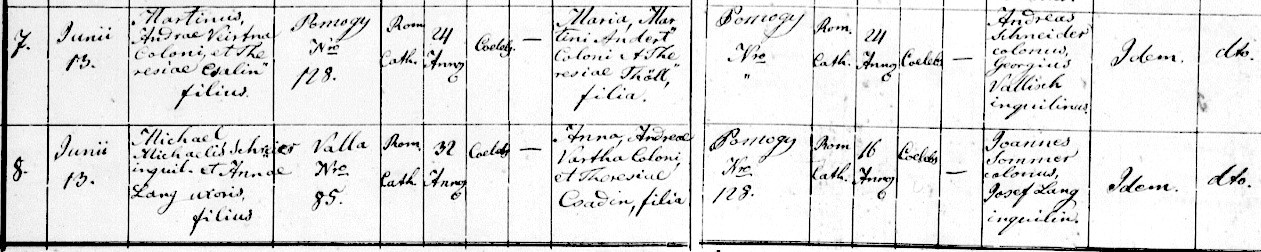 7.
Junii
13.
Martinus,
Andrae Vertha
Coloni, et The
resiae Csalin
filius.
Pomogy
Nro
128.
Rom.
Cath.
24
Anno
Coelebs
—
Maria, Mar
tini Andert
Coloni et The
resiae Thöll,
filia.
Pomogy
Nro
"
Rom.
Cath.
24
Anno
Coelebs
—
Andreas
Schneider
colonus,
Georgius
Vallisch
inquilinus
Idem.
dto.
8.
Junii
13.
Michael
Michaelis Schreier
inquil. et Annae
Lang uxoris,
filius
Valla
Nro
85.
Rom.
Cath.
32
Anno
Coelebs
—
Anna, Andreae
Vartha Coloni,
et Theresiae
Csadin, filia
Pomogy
Nro
128.
Rom
Cath.
16
Anno
Coelebs
—
Joannes
Sommer
colonus,
Josef Lang
inquilin.
Idem.
dto.